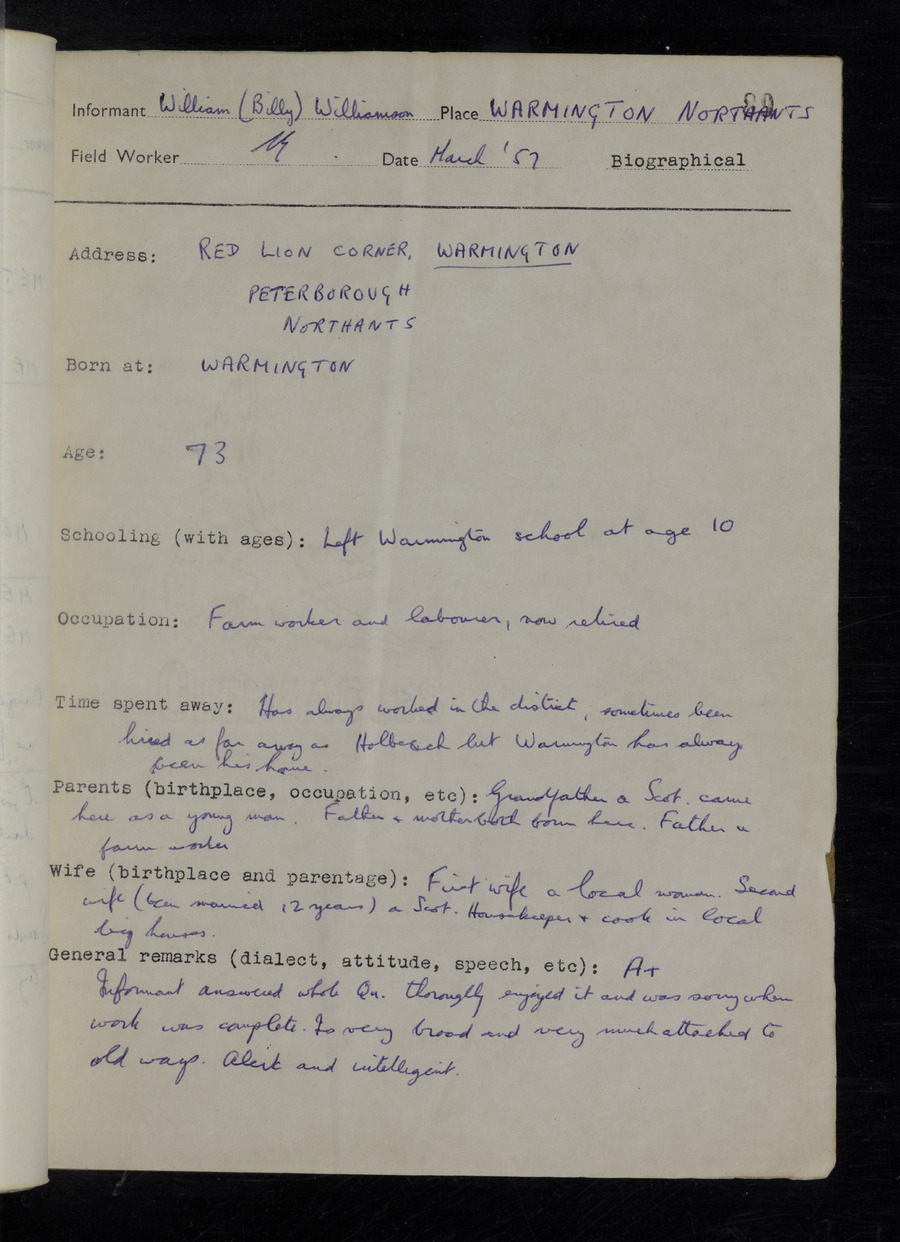 Informant William (Billy) Williamson Place WARMINGTON NORTHANTS
Field Worker Date March '57 Biographical
Address: RED LION CORNER, WARMINGTON
PETERBOROUGH
NORTHANTS
Born at: WARMINGTON
Age: 73
Schooling (with ages): Left Warmington school at age 10
Occupation: Farm worker and labourer, now retired
Time spent away: Has always worked in the district, sometimes been
hired as far away as Holbeach but Warmington has always
been his home.
Parents (birthplace, occupation, etc): Grandfather a Scot. came
here as a young man. Father & mother both born here. Father a
farm worker
Wife (birthplace and parentage): First wife a local woman. Second
wife (been married 12 years) a Scot. Housekeeper & cook in local
big houses.
General remarks (dialect, attitude, speech, etc): A+
Informant answered whole Qn. thoroughly enjoyed it and was sorry when
work was complete. Is very broad and very much attached to
old ways. Alert and intelligent.